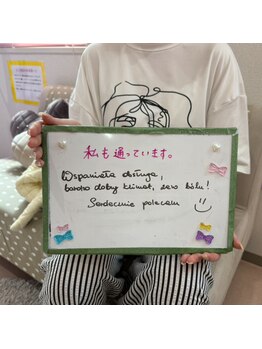 私も通っています。
Wspaniała obsługa,
bardzo dobry klimat, zero bólu!
Serdecznie polecam